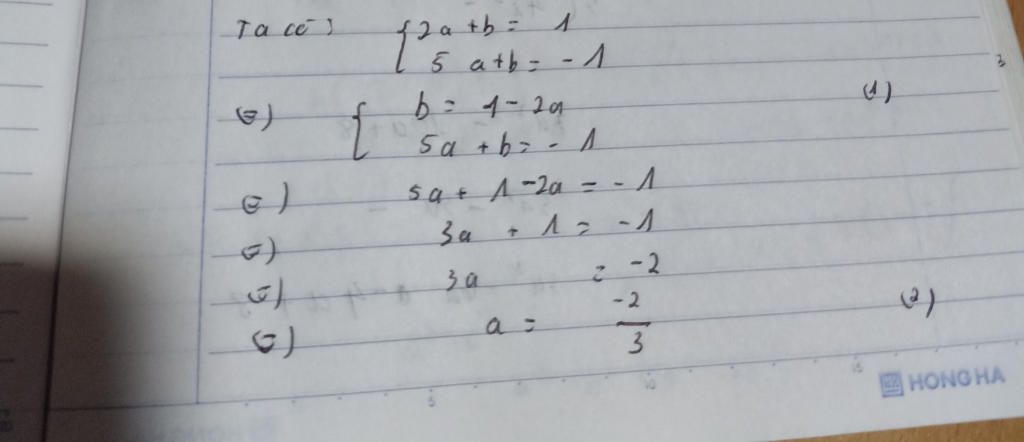 Ta có {2a + b = 1
5 a + b = - 1
⇔) { b = 1 - 2a (1)
5a + b = - 1
⇔) 5a + 1 - 2a = - 1
⇔) 3a + 1 = - 1
⇔) 3a = - 2
⇔) a = -2/3 (2)
5 10 15
HONG HA